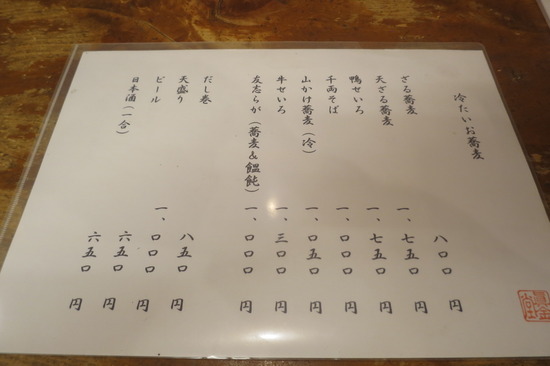 冷たいお蕎麦
ざる蕎麦 八〇〇円
天ざる蕎麦 一、七五〇円
鴨せいろ 一、七五〇円
千両そば 一、〇〇〇円
山かけ蕎麦(冷) 一、〇五〇円
牛せいろ 一、三〇〇円
友志らが(蕎麦&饂飩) 一、〇〇〇円
だし巻 八五〇円
天盛り 一、〇〇〇円
ビール 六五〇円
日本酒(一合) 六五〇円